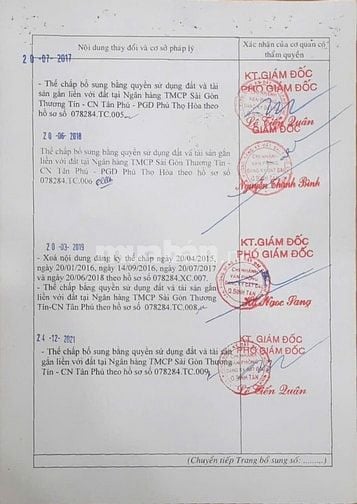 Nội dung thay đổi và cơ sở pháp lý
Xác nhận của cơ quan có
thẩm quyền
20-07-2017
- Thế chấp bổ sung bằng quyền sử dụng đất và tài
sản gắn liền với đất tại Ngân hàng TMCP Sài Gòn
Thương Tín - CN Tân Phú - PGD Phú Thọ Hòa theo
hồ sơ số 078284.TC.005
KT.GIÁM ĐỐC
PHÓ GIÁM ĐỐC
Lê Tiến Quân
20-06-2018
Thế chấp bổ sung bằng quyền sử dụng đất và tài sản gắn
liền với đất tại Ngân hàng TMCP Sài Gòn Thương Tín -
CN Tân Phú - PGD Phú Thọ Hòa theo hồ sơ số
078284.TC.006
GIÁM ĐỐC
Nguyễn Thanh Bình
20-03-2019
- Xoá nội dung đăng ký thế chấp ngày 20/04/2015,
ngày 20/01/2016, ngày 14/09/2016, ngày 20/07/2017
và ngày 20/06/2018 theo hồ sơ số 078284.XC.007.
- Thế chấp bằng quyền sử dụng đất và tài sản gắn
liền với đất tại Ngân hàng TMCP Sài Gòn Thương
Tín-CN Tân Phú theo hồ sơ số 078284.TC.008
KT.GIÁM ĐỐC
PHÓ GIÁM ĐỐC
CHI NHÁNH
VĂN PHÒNG
ĐĂNG KÝ ĐẤT ĐAI
Q.BÌNH TÂN
Ngọc Sang
24-12-2021
- Thế chấp bổ sung bằng quyền sử dụng đất và tài sản
gắn liền với đất tại Ngân hàng TMCP Sài Gòn Thương
Tín - CN Tân Phú theo hồ sơ số 078284.TC.009
KT.GIÁM ĐỐC
PHÓ GIÁM ĐỐC
Q.BÌNH TÂN
Lê Tiến Quân
(Chuyển tiếp Trang bổ sung số: ..........)